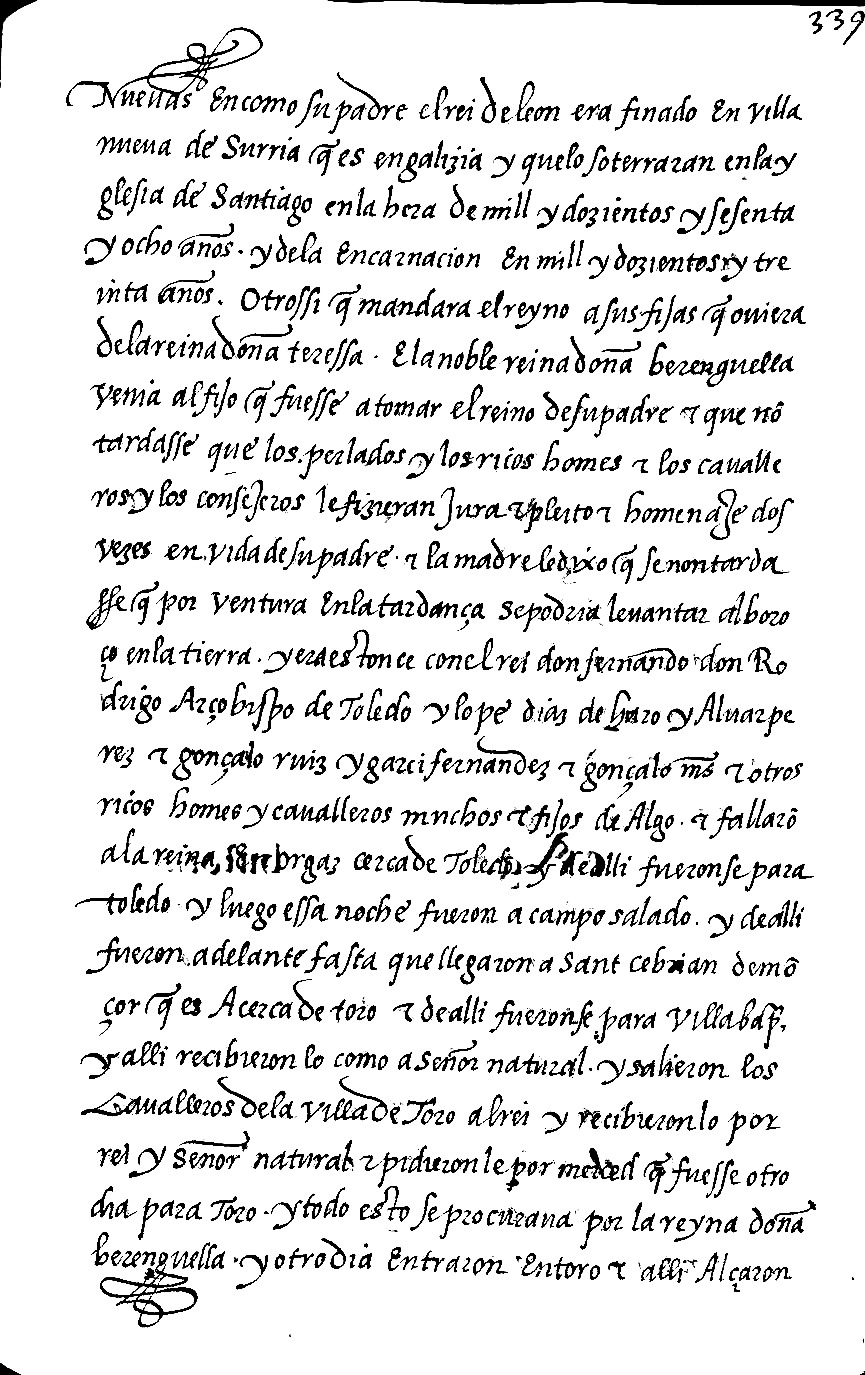 339
Nuevas En como su padre el rei de leon era finado En villa
nueva de Surria q̃ es en galizia y que lo soterraran en la y
glesia de Santiago en la hera de mill y dozientos y sesenta
y ocho años. y de la Encarnacion En mill y dozientos y tre
inta años. Otrossi q̃ mandara el reyno a sus fijas q̃ oviera
de la reina doña teressa. E la noble reina doña berenguella
venia al fijo q̃ fuesse a tomar el reino de su padre τ que nõ
tardasse que los perlados y los ricos homes τ los cavalle
ros y los consejeros le fizieran Jura τ pleito τ homenaje dos
vezes en vida de su padre. τ la madre le dixo q̃ se non tarda
sse q̃ por ventura En la tardança se podria levantar alboro
ço en la tierra. y era estonce con el rei don fernando don Ro
drigo Arçobispo de Toledo y lope diaz de haro y Alvar pe
rez τ gonçalo ruiz y garci fernandez τ gonçalo m̃s τ otros
ricos homes y cavalleros muchos τ fijos de Algo. τ fallarõ
a la reina, en orgaz cerca de Toledo, y de alli fueronse para
toledo. y luego essa noche fueron a campo salado. y de alli
fueron adelante fasta que llegaron a Sant cebrian de mõ
çor q̃ es Acerca de toro τ de alli fueronse para Villabap̃.
y alli recibieron lo como a señor natural. y salieron los
Cavalleros de la villa de Toro al rei y recibieronlo por
rei y señor natural τ pidieronle por merced q̃ fuesse otro
dia para Toro. y todo esto se procurava por la reyna doña
berenguella. y otro dia Entraron En toro τ alli Alçaron